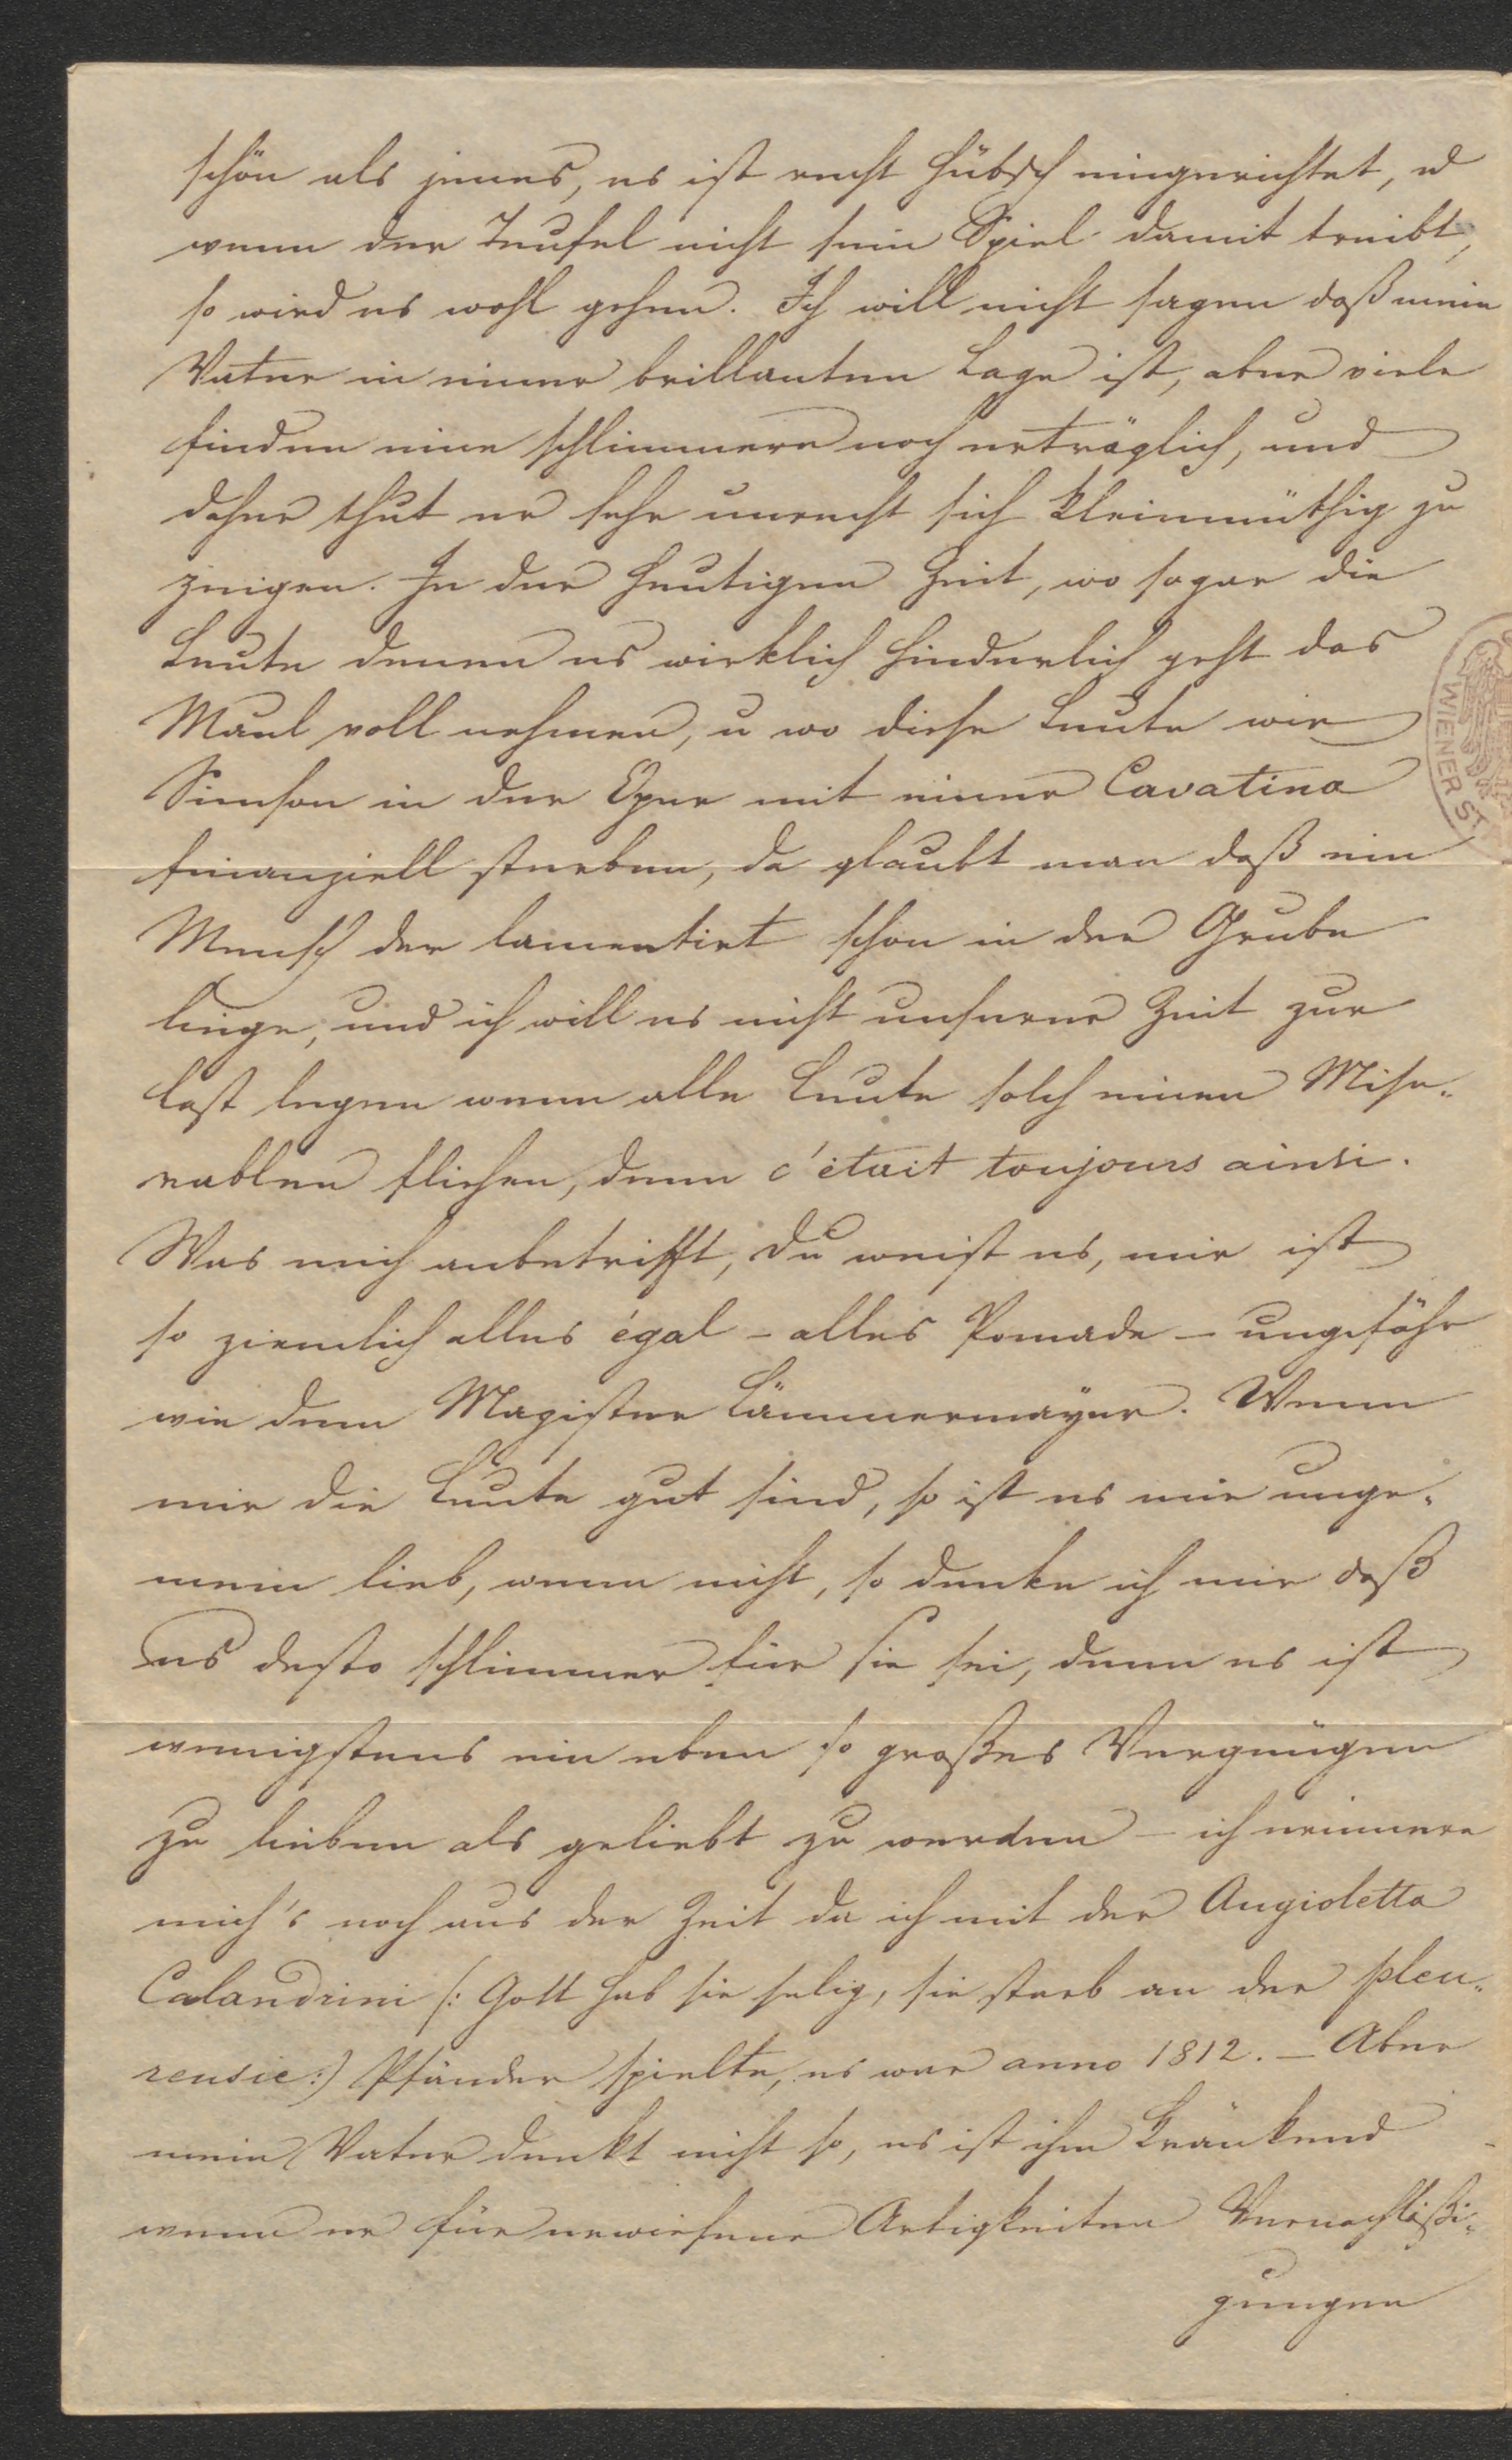 schön als jenes, es ist recht hübsch eingerichtet, u
wenn der Teufel nicht sein Spiel damit treibt,
so wird es wohl gehen. Ich will nicht sagen daß mein
Vater in einer brillanten Lage ist, aber viele
finden eine schlimmere noch erträglich, und
daher thut er sehr unrecht sich kleinmüthig zu
zeigen. In der heutigen Zeit, wo sogar die
Leute denen es wirklich hinderlich geht das
Maul voll nehmen, u wo diese Leute wie
Simson in der Oper mit einer Cavatina
finanziell sterben, da glaubt man daß ein
Mensch der lamentirt schon in der Grube
liege, und ich will es nicht unserer Zeit zur
Last legen wenn alle Leute solch einen Mise-
rablen fliehen, denn c'était toujours ainsi.
Was mich anbetrifft, du weist es, mir ist
so ziemlich alles égal – alles Pomade – ungefähr
wie dem Magister Lämmermayer. Wenn
mir die Leute gut sind, so ist es mir unge-
mein lieb, wenn nicht, so denke ich mir daß
es desto schlimmer für sie sei, denn es ist
wenigstens ein eben so großes Vergnügen
zu lieben als geliebt zu werden – ich erinnere
mich's noch aus der Zeit da ich mit der Angioletta
Calandrini (: Gott hab sie selig, sie starb an der pleu-
reusie :) Pfänder spielte, es war anno 1812. – Aber
mein Vater denkt nicht so, es ist ihm kränkend
wenn er für erwiesene Artigkeiten Vernachläßi-
gungen
WIENER ST